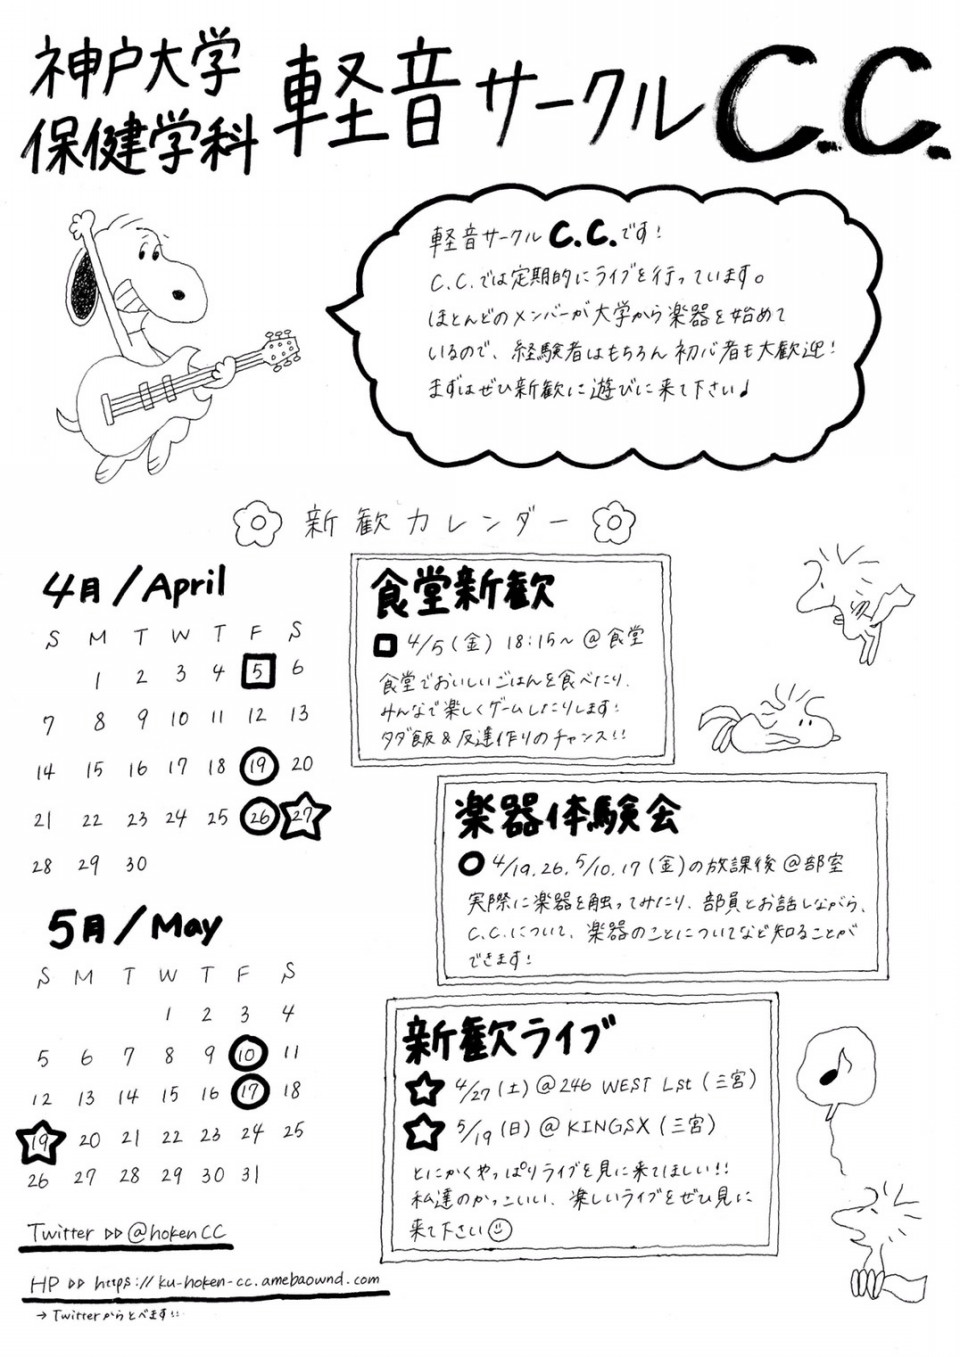 神戸大学
保健学科
軽音サークル C.C.
軽音サークル C.C.です!
C.C.では定期的にライブを行っています。
ほとんどのメンバーが大学から楽器を始めて
いるので、経験者はもちろん初心者も大歓迎!
まずはぜひ新歓に遊びに来て下さい♪
新歓カレンダー
4月/April
S M T W T F S
1 2 3 4 5 6
7 8 9 10 11 12 13
14 15 16 17 18 19 20
21 22 23 24 25 26 27
28 29 30
食堂新歓
4/5(金) 18:15~ @食堂
食堂でおいしいごはんを食べたり、
みんなで楽しくゲームしたりします!
タダ飯&友達作りのチャンス!!
楽器体験会
4/19.26.5/10.17(金)の放課後@部室
実際に楽器を触ってみたり、部員とお話しながら、
C.C.について、楽器のことについてなど知ることが
できます!
5月/May
S M T W T F S
1 2 3 4
5 6 7 8 9 10 11
12 13 14 15 16 17 18
19 20 21 22 23 24 25
26 27 28 29 30 31
新歓ライブ
4/27(土)@246 WEST Lst(三宮)
5/19(日)@KINGSX(三宮)
とにかくやっぱりライブを見に来てほしい!!
私達のかっこいい、楽しいライブをぜひ見に
来て下さい
Twitter ▷▷ @hokenCC
HP ▷▷ https://ku-hoken-cc.amebaownd.com
→ Twitterからとべます!!